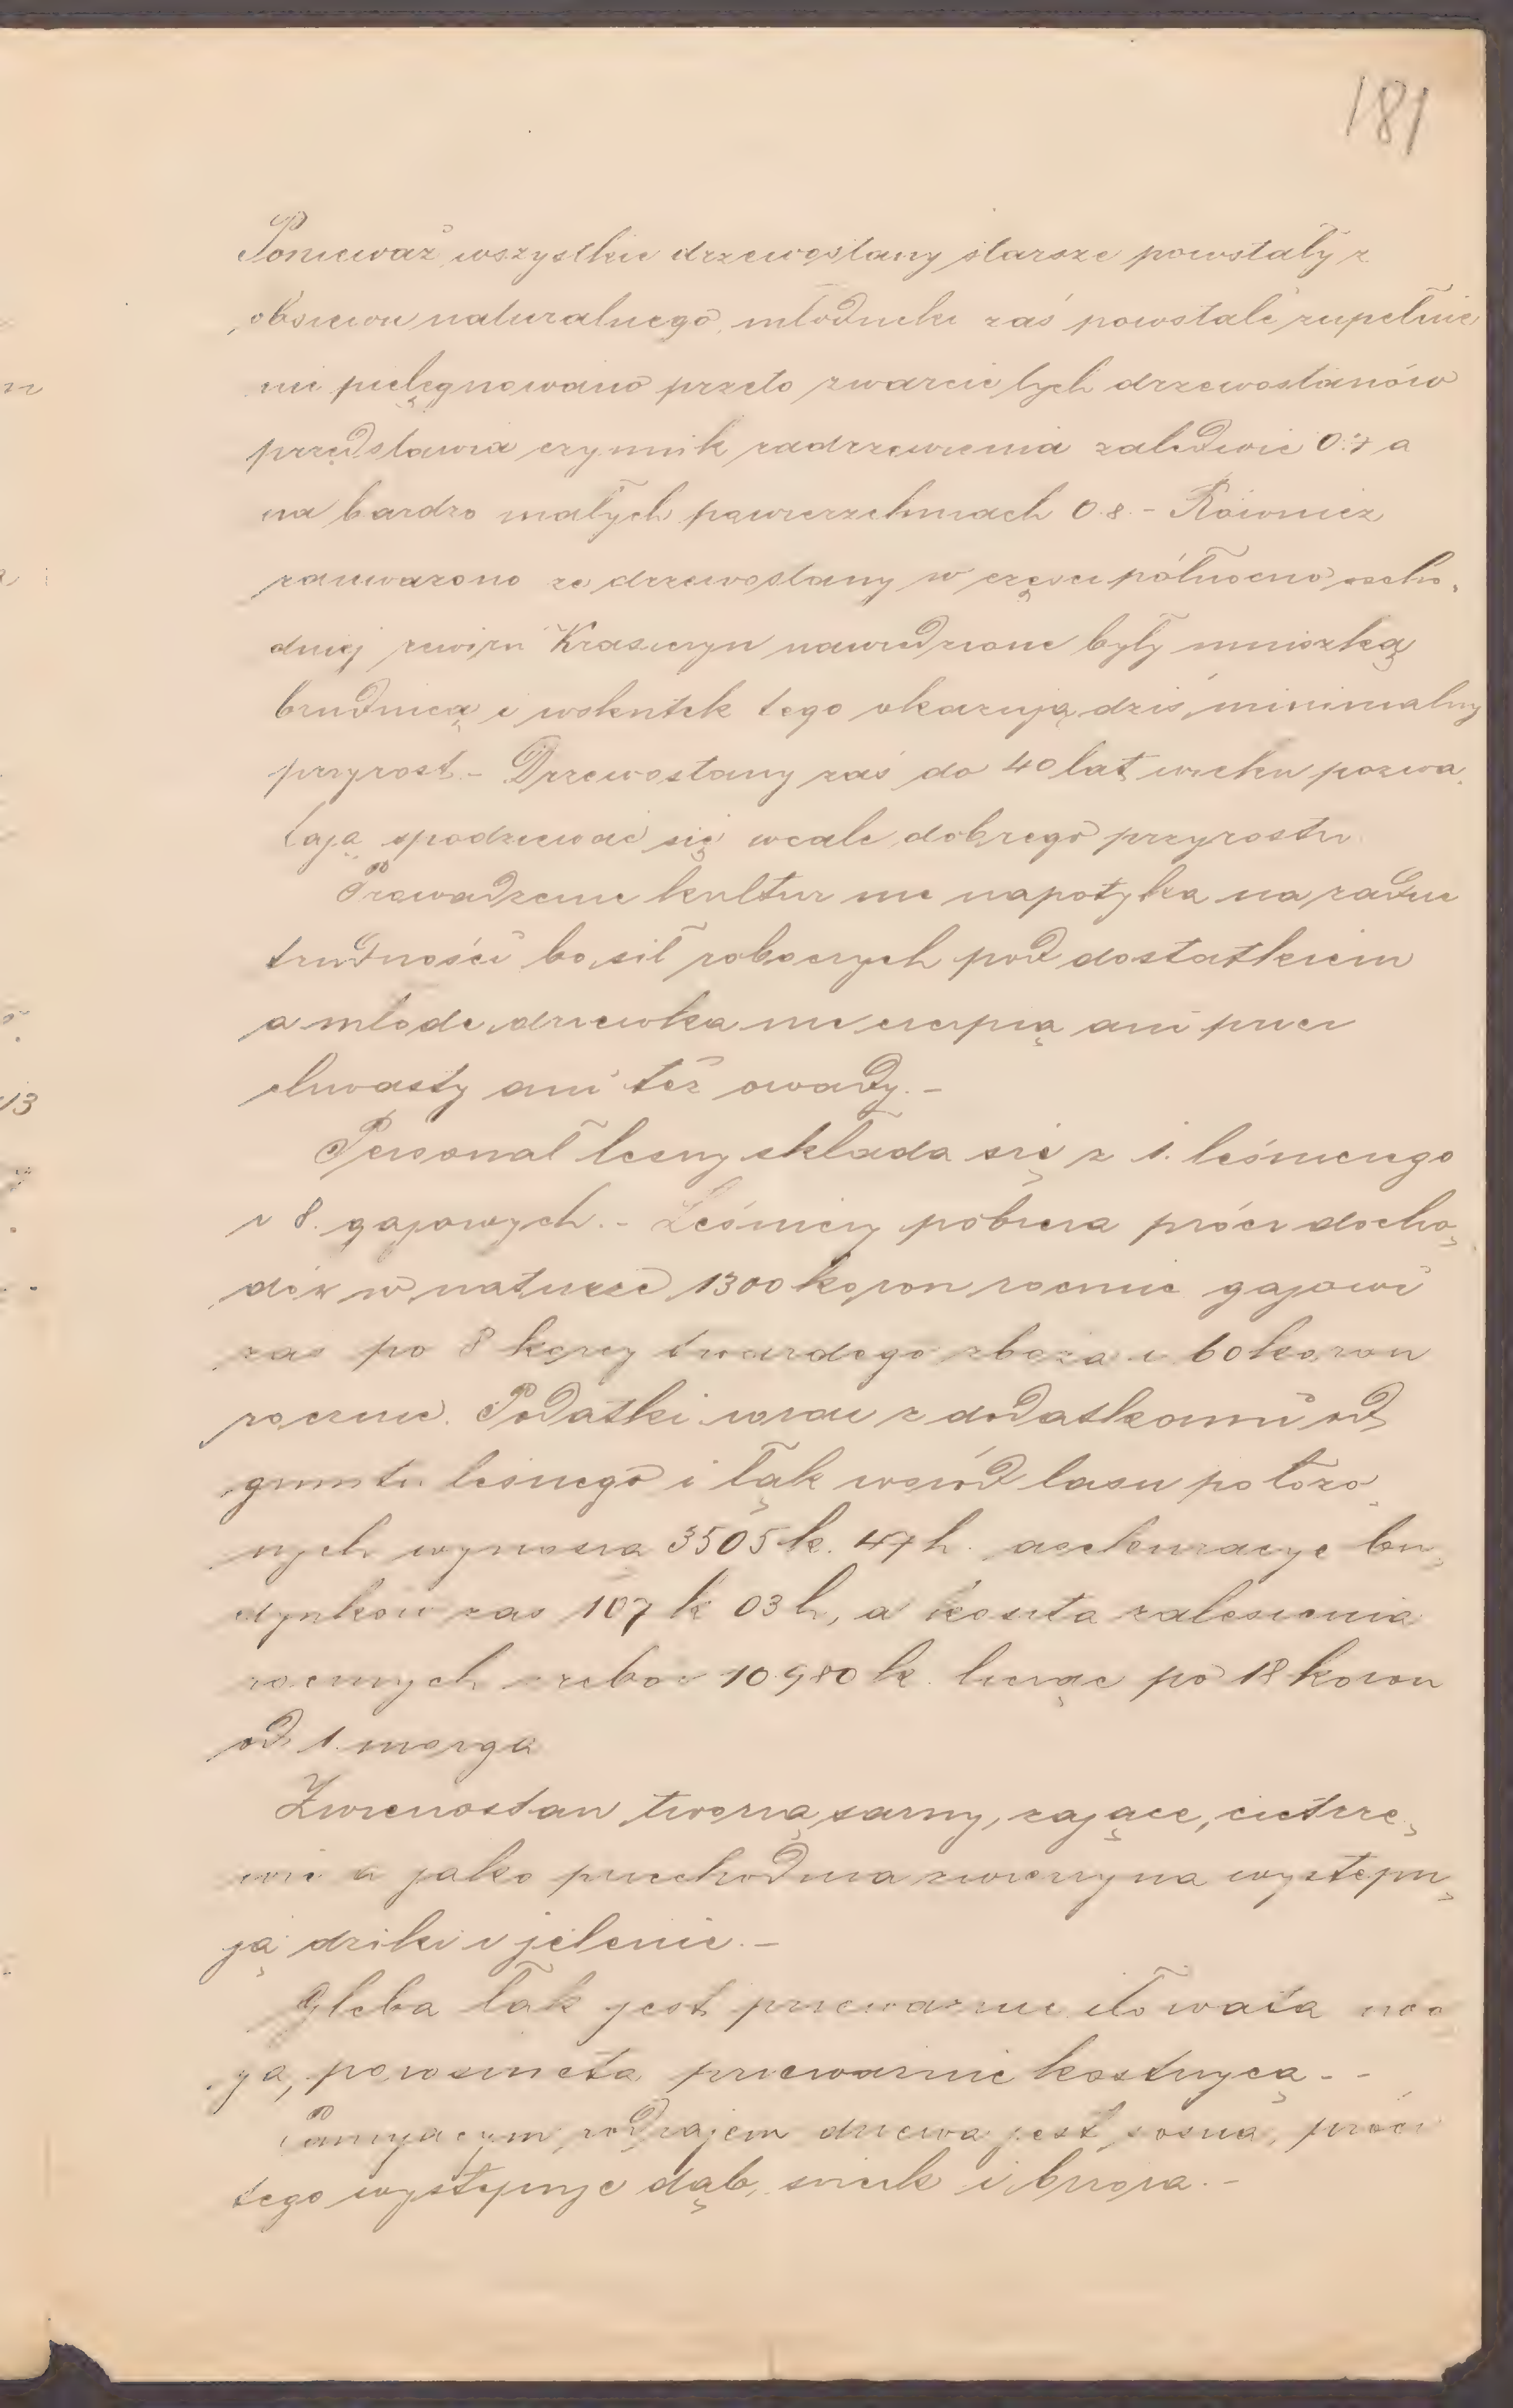 181
Ponieważ wszystkie drzewostany starsze powstały z
obsiewu naturalnego, młodniki zaś powstałe zupełnie
nie pielęgnowano przeto zwarcie tych drzewostanów
przedstawia czynnik zadrzewienia zaledwie 0.7 a
na bardzo małych powierzchniach 0.8 - Również
zauważono że drzewostany w części północno zacho-
dniej rewiru Krasiczyn nawiedzione były mniszką
brudnicą i wskutek tego okazują dziś minimalny
przyrost - Drzewostany zaś do 40 lat wieku pozwa-
lają spodziewać się wcale dobrego przyrostu
Prowadzenie kultur nie napotyka na żadne
trudności bo sił roboczych pod dostatkiem
a młode drzewka nie cierpią ani przez
chwasty ani też owady. -
Personal leśny składa się z 1. leśniczego
i 8. gajowych. - Leśniczy pobiera prócz docho-
dów w naturze 1300 koron rocznie gajowi
zaś po 8 korcy twardego zboża i 60 koron
rocznie. Podatki wraz z dodatkami od
gruntu leśnego i łąk wśród lasu położo-
nych wynoszą 3505 k. 47 h. asekuracye bu-
dynków zaś 107 k 03 h, a koszta zalesienia
rocznych zrębów 10980 k. licząc po 18 koron
od 1. morga
Zwierzostan tworzą sarny, zające, cietrze-
wie a jako przechodnia zwierzyna występu-
ją dziki i jelenie. -
Gleba łąk jest przeważnie iłowata
porośnięta przeważnie kostrzycą - -
Panującym rodzajem drzewa jest sosna, prócz
tego występuje dąb, świerk i brzoza. -